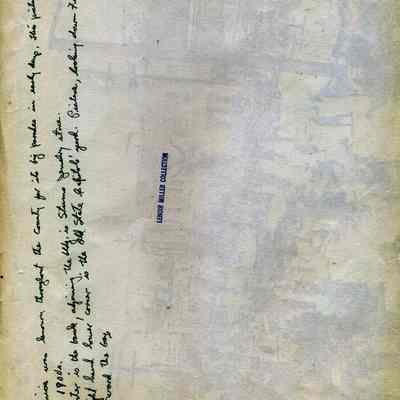 was known throughout the County for its big parades in early days, this
1900s.
is the bank, adjoining the bldg is jewelry store.
hand lower corner is the old State Capitol yard. Picture, looking down
toward the bay
LENOIR MILLER COLLECTION